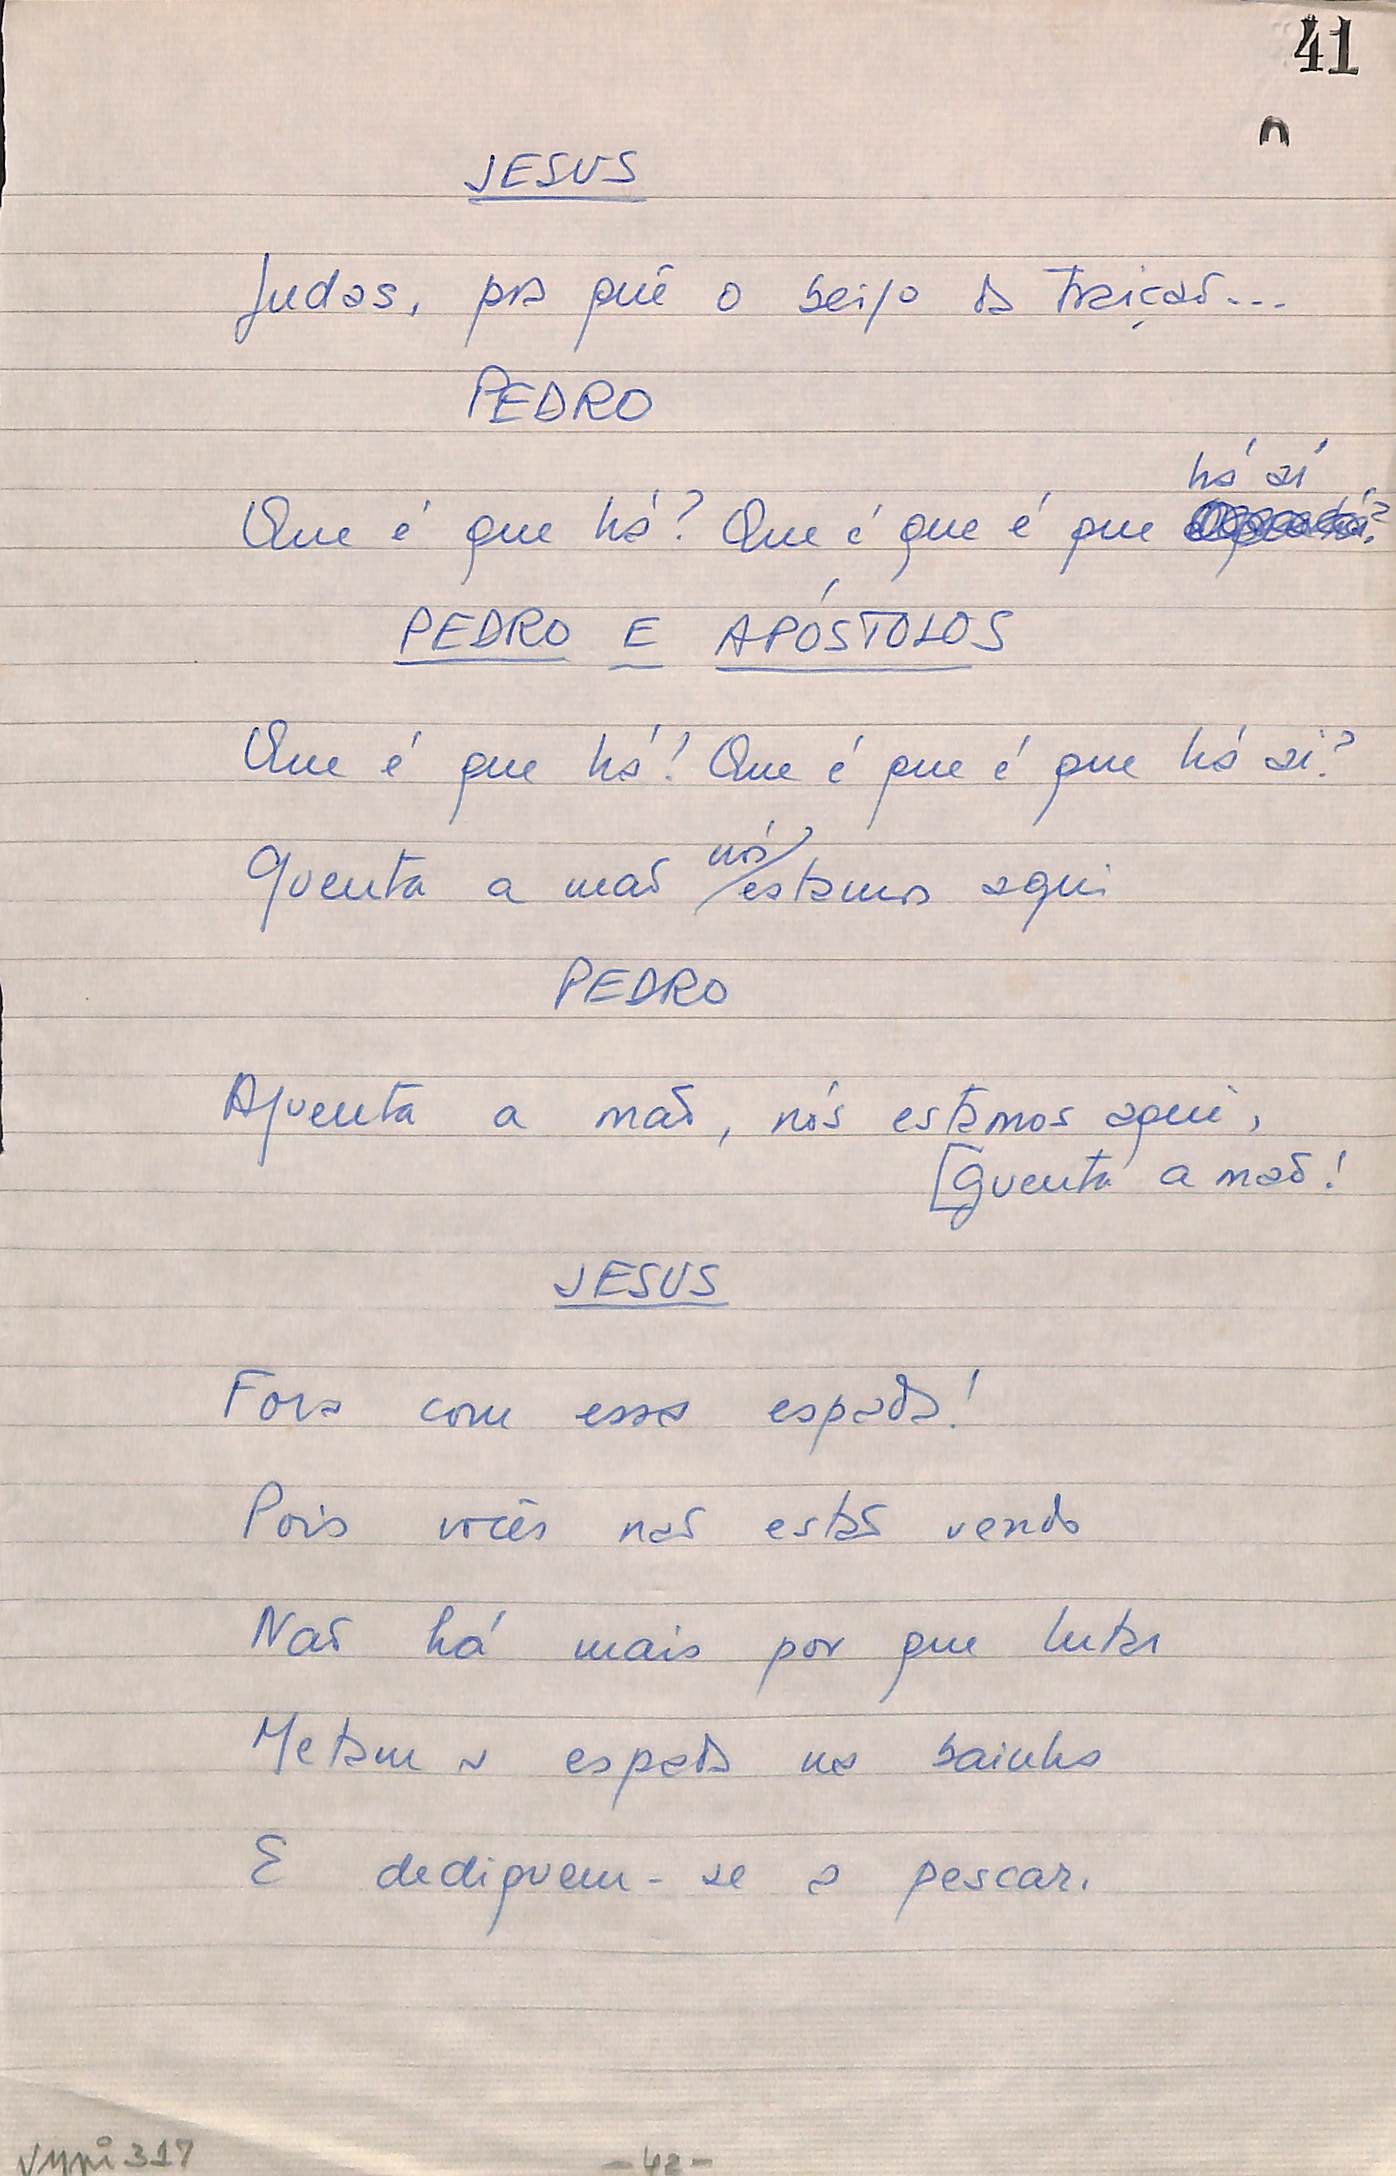 41
n
JESUS
Judas, pra quê o beijo da traição...
PEDRO
há aí
Que é que há? Que é que é que ?
PEDRO E APÓSTOLOS
Que é que há! Que é que é que há aí?
nós
Guenta a mão estamos aqui
PEDRO
Aguenta a mão, nós estamos aqui,
[guenta a mão!
JESUS
Fora com essa espada!
Pois vocês não estão vendo
Não há mais por que lutar
Metam a espada na bainha
E dediquem-se a pescar.
vmpi 317
-42-